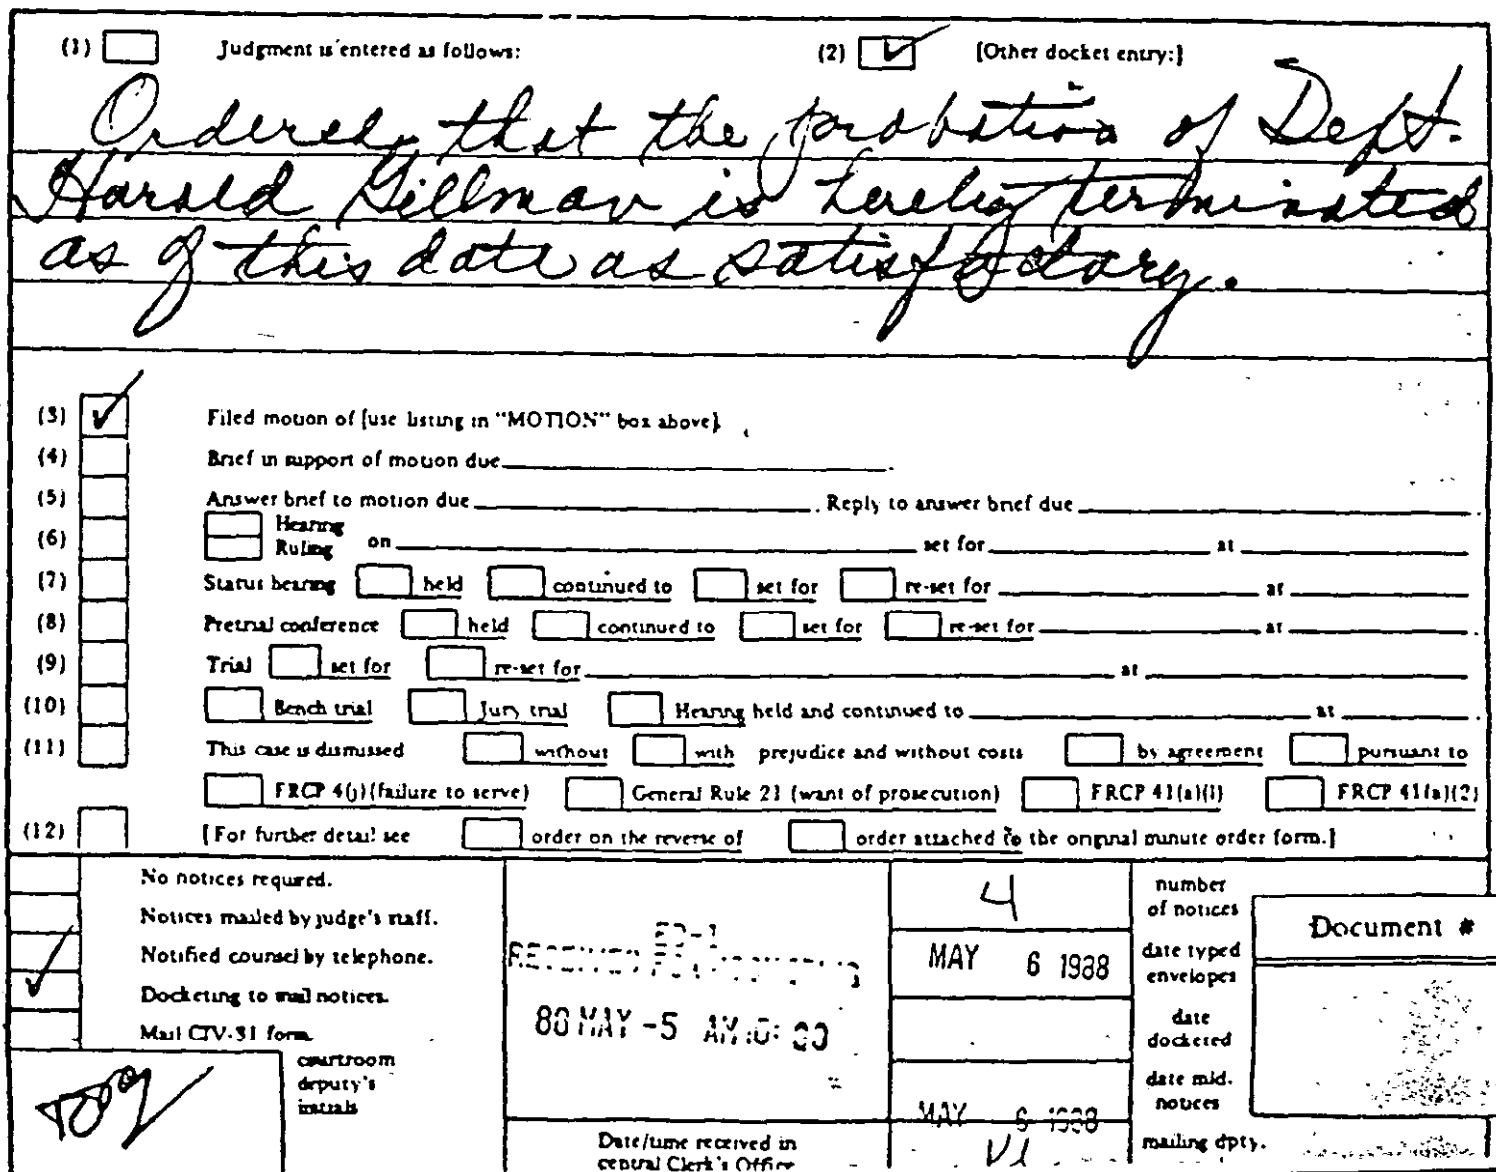 (1) Judgment is entered as follows: (2) [Other docket entry:]
Ordered that the probation of Deft.
Harold Gillman is hereby terminated
as of this date as satisfactory.
(3) Filed motion of [use listing in "MOTION" box above].
(4) Brief in support of motion due
(5) Answer brief to motion due . Reply to answer brief due
(6) Hearing
Ruling on set for at
(7) Status hearing held continued to set for re-set for at
(8) Pretrial conference held continued to set for re-set for at
(9) Trial set for re-set for at
(10) Bench trial Jury trial Hearing held and continued to at
(11) This case is dismissed without with prejudice and without costs by agreement pursuant to
FRCP 4(j)(failure to serve) General Rule 21 (want of prosecution) FRCP 41(a)(1) FRCP 41(a)(2)
(12) [For further detail see order on the reverse of order attached to the original minute order form.]
No notices required.
Notices mailed by judge's staff.
Notified counsel by telephone.
Docketing to mail notices.
Mail CIV-31 form.
courtroom
deputy's
initials
RECEIVED
MAY -5
Date/time received in
central Clerk's Office
4
MAY 6 1988
MAY 6 1988
number
of notices
date typed
envelopes
date
docketed
date mld.
notices
mailing dpty.
Document #